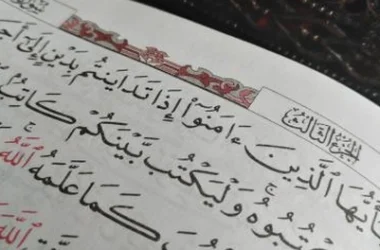 الجزء الثالث
يَٰٓأَيُّهَا ٱلَّذِينَ ءَامَنُوٓا۟ إِذَا تَدَايَنتُم بِدَيْنٍ إِلَىٰٓ
تُبُوهُ وَلْيَكْتُب بَّيْنَكُمْ كَاتِبٌ
كَمَا عَلَّمَهُ ٱللَّهُ
ٱللَّهَ